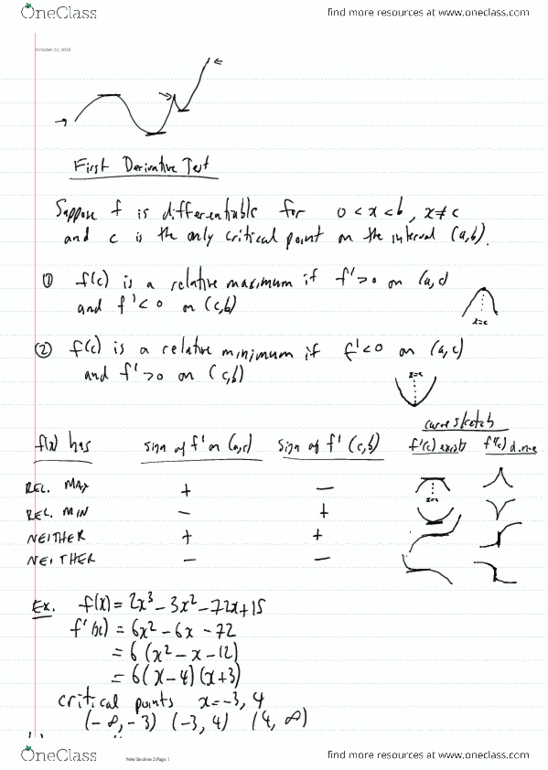 OneClass
find more resources at www.oneclass.com
First Derivative Test
Suppose f is differentiable for 0 < x < b, x ≠ c
and c is the only critical point on the interval (a,b).
① f(c) is a relative maximum if f'>0 on (a,c)
and f'<0 on (c,b)
x=c
② f(c) is a relative minimum if f'<0 on (a,c)
and f'>0 on (c,b)
x=c
curve sketch
f(x) has sign of f' on (a,c) sign of f' (c,b) f'(c) exists f'(c) d.n.e
REL. MAX + −
x=c
REL. MIN − +
NEITHER + +
NEITHER − −
Ex. f(x) = 2x³ − 3x² − 72x + 15
f'(x) = 6x² − 6x − 72
= 6(x² − x − 12)
= 6(x−4)(x+3)
critical points x=−3, 4
(−∞, −3) (−3, 4) (4, ∞)
OneClass
New Section 2 Page 1
find more resources at www.oneclass.com